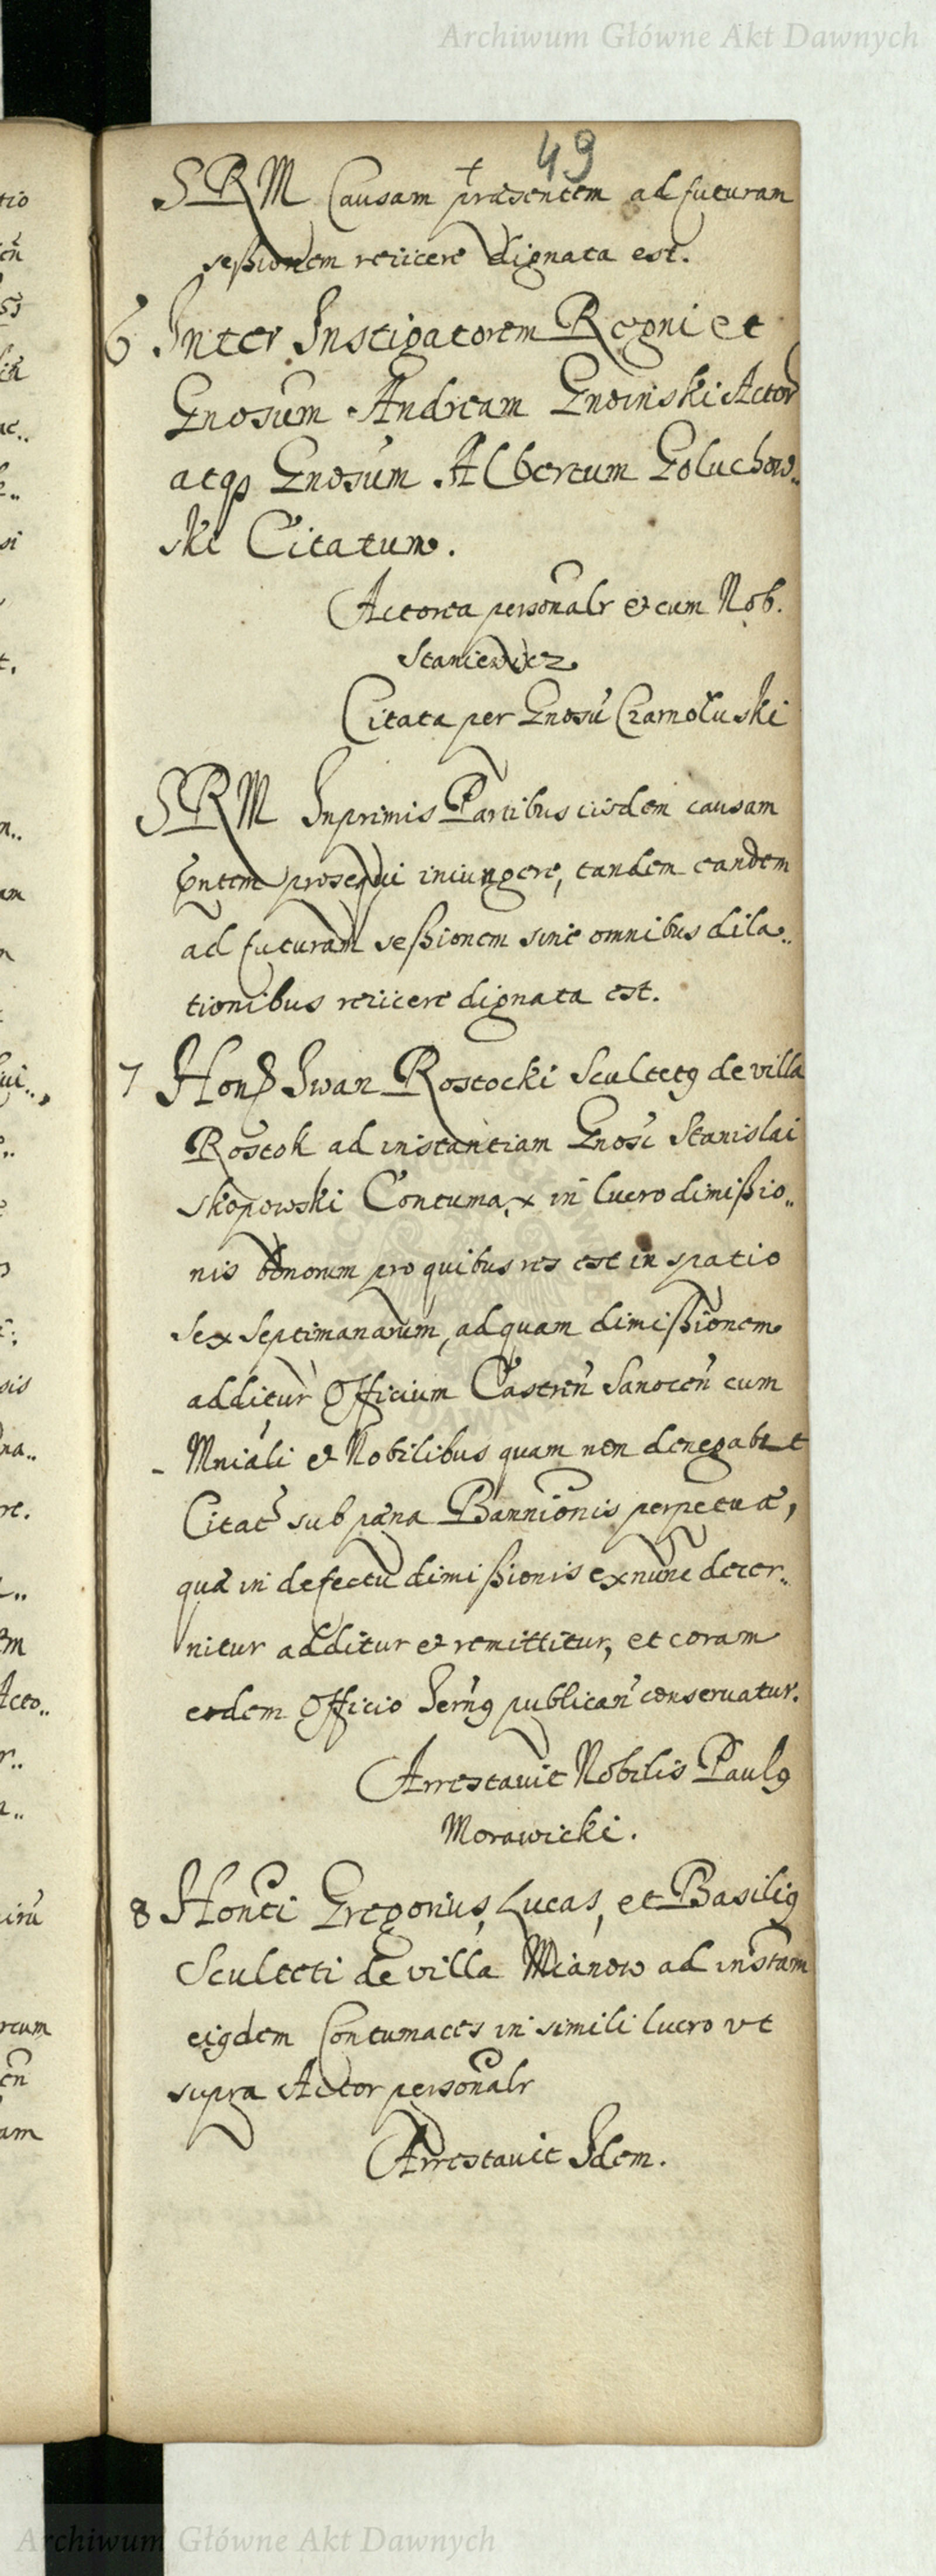 Archiwum Główne Akt Dawnych
49
SRM Causam præsentem ad futuram
seßionem reiicere dignata est.
6 Inter Instigatorem Regni et
Gnosum Andream Gnoinski Actor
atqs Gnosum Albertum Goluchow..
ski Citatum.
Actorea personalr & cum Nob.
Staniewicz
Citata per Gnosū Czarnoluski
SRM Inprimis Partibus iisdem causam
pntem prosequi iniungere, tandem eandem
ad futuram seßionem sine omnibus dila..
tionibus reiicere dignata est.
7 Hons Iwan Rostocki Scultetq de villa
Rostok ad instantiam Gnosi Stanislai
Skopowski Contumax in lucro dimißio..
nis bonorum pro quibus res est in spatio
sex septimanarum, ad quam dimißionem
additur Officium Castren Sanocen cum
Mniali & Nobilibus quam non denegabit
Citats sub pæna Bannionis perpetuæ,
quæ in defectu dimißionis ex nunc decer..
nitur additur & remittitur, et coram
eodem Officio Sernq publican conseruatur.
Arrestauit Nobilis Paulq
Morawicki.
8 Honti Gregorius, Lucas, et Basiliq
Sculteti de villa Mianow ad instam
eiqdem Contumaces in simili lucro vt
supra Actor personalr
Arrestauit Idem.
Archiwum Główne Akt Dawnych